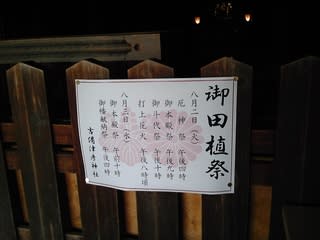 御田植祭
八月二日（火）
厄神祭　午後四時
御本殿祭　午後九時
御斗代祭　午後十時
打上花火　午後八時頃
八月三日（水）
御本殿祭　午前十時
御幡献納祭　午後四時
吉備津彦神社